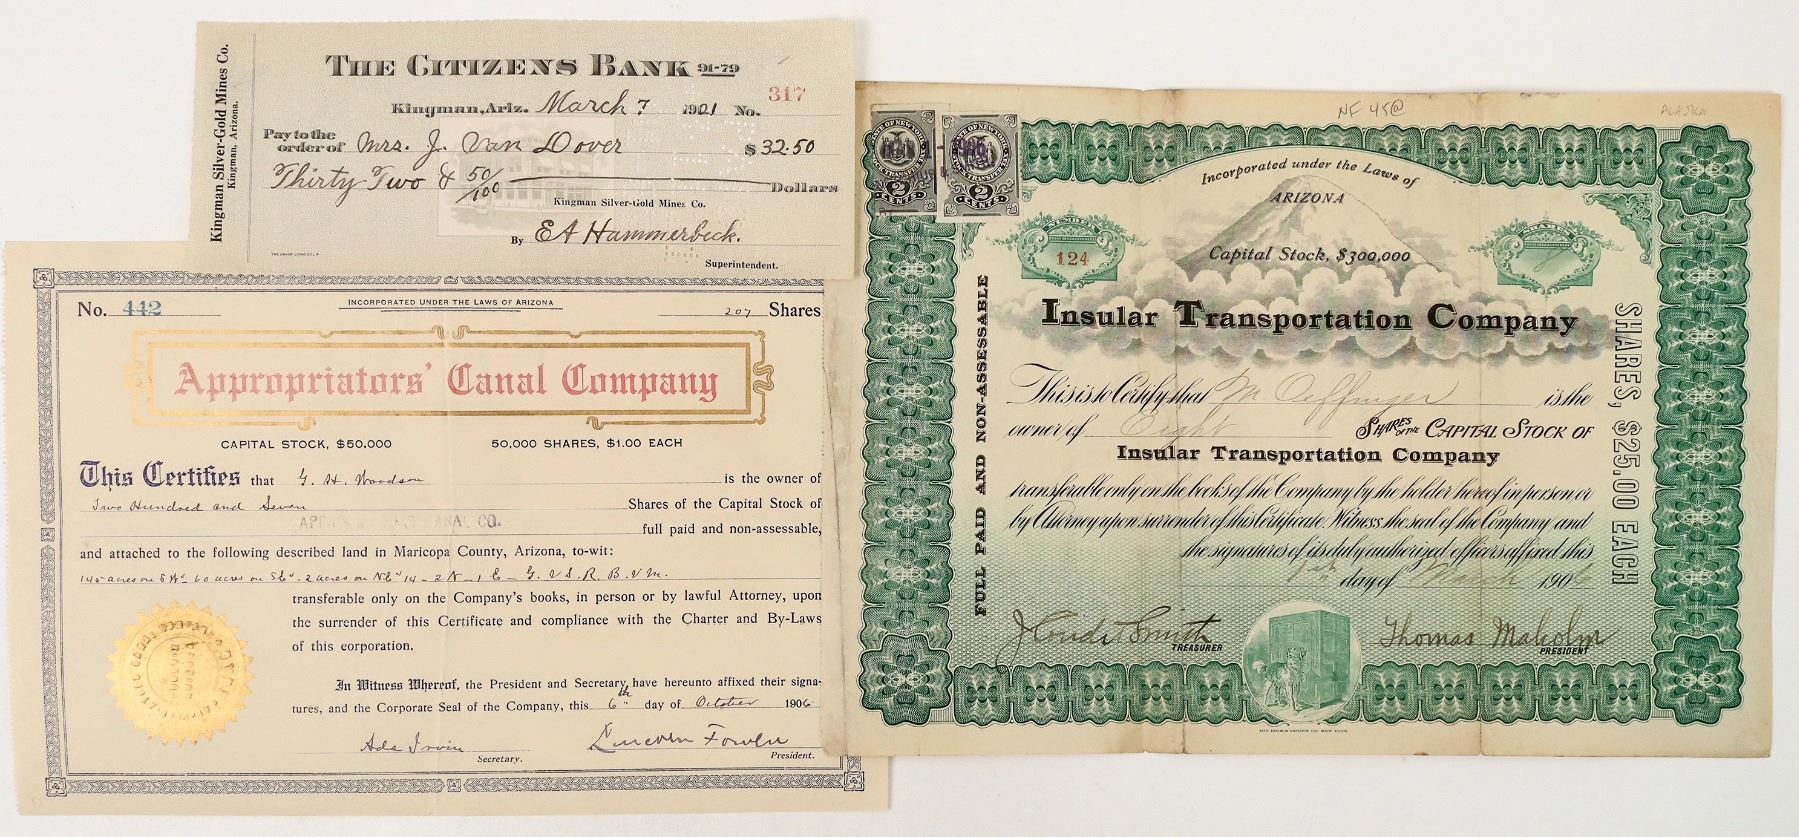 THE CITIZENS BANK 91-79
Kingman Silver-Gold Mines Co.
Kingman, Arizona.
Kingman, Ariz. March 7 1921 No. 317
Pay to the
order of Mrs. J. Van Dover $32.50
Thirty Two & 50/100 Dollars
Kingman Silver-Gold Mines Co.
By EA Hammerbeck.
Superintendent.
No. 442
INCORPORATED UNDER THE LAWS OF ARIZONA
207 Shares
Appropriators' Canal Company
CAPITAL STOCK, $50,000
50,000 SHARES, $1.00 EACH
This Certifies that G. H. Woodson is the owner of
Two Hundred and Seven Shares of the Capital Stock of
CANAL CO. full paid and non-assessable,
and attached to the following described land in Maricopa County, Arizona, to-wit:
145 acres on SW 60 acres on SE 2 acres on NE 14-2N-1E- G. & S. R. B. & M.
transferable only on the Company's books, in person or by lawful Attorney, upon
the surrender of this Certificate and compliance with the Charter and By-Laws
of this corporation.
In Witness Whereof, the President and Secretary have hereunto affixed their signa-
tures, and the Corporate Seal of the Company, this 6th day of October 1906
Ada Irvin
Secretary.
Lincoln Fowler
President.
NF 45@
ALASKA
2 CENTS
2 CENTS
Incorporated under the Laws of
ARIZONA
NUMBER
124
Capital Stock, $300,000
SHARES
8
Insular Transportation Company
FULL PAID AND NON-ASSESSABLE
SHARES, $25.00 EACH
This is to Certify that M. Oeffinger is the
owner of Eight SHARES OF THE CAPITAL STOCK OF
Insular Transportation Company
transferable only on the books of the Company by the holder hereof in person or
by Attorney upon surrender of this Certificate. Witness the seal of the Company and
the signatures of its duly authorized officers affixed this
day of March 1906
Smith
TREASURER
Thomas Malcolm
PRESIDENT